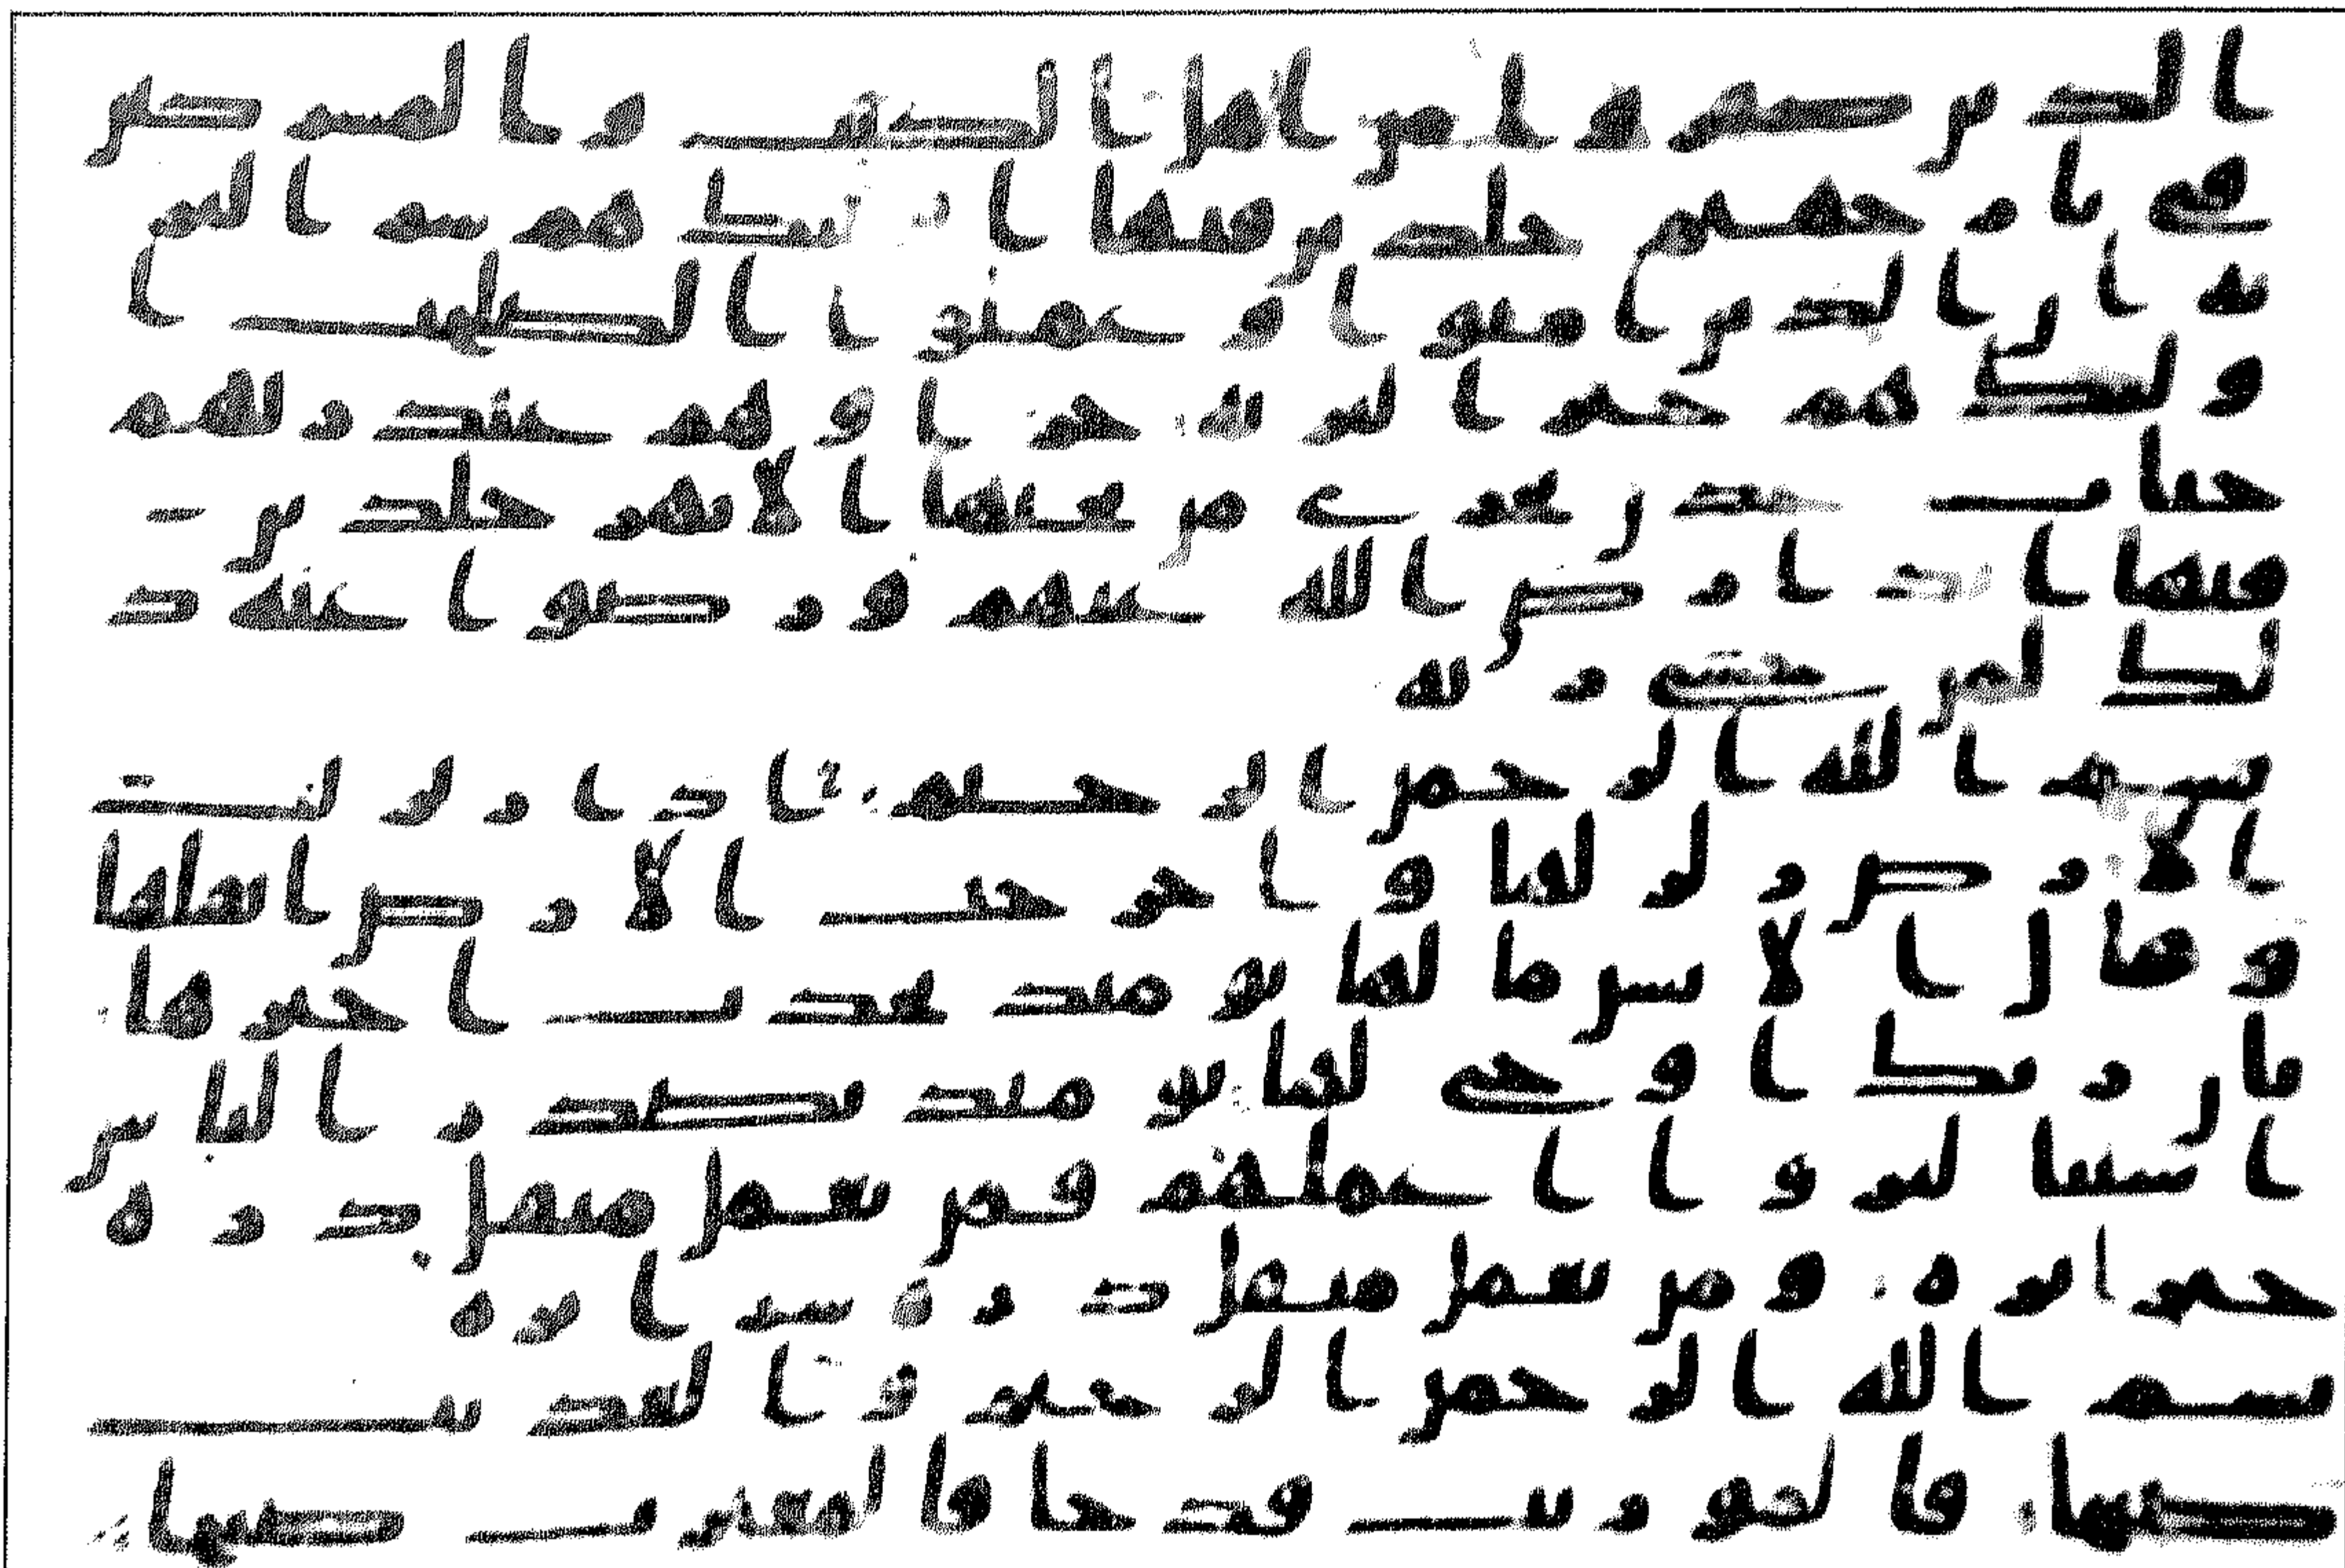 الذين كفروا من اهل الكتب والمشركين
في نار جهنم خلدين فيها اولئك هم شر البر
ية ان الذين امنوا وعملوا الصلحت ا
ولئك هم خير البرية جزاوهم عند ربهم
جنات عدن تجري من تحتها الانهر خلدين
فيها ابدا رضي الله عنهم ورضوا عنه ذ
لك لمن خشي ربه
بسم الله الرحمن الرحيم اذا زلزلت
الارض زلزلها واخرجت الارض اثقالها
وقال الانسن ما لها يومئذ تحدث اخبرها
بان ربك اوحى لها يومئذ يصدر الناس
اشتتا ليروا اعملهم فمن يعمل مثقل ذره
خيرا يره ومن يعمل مثقل ذرة شرا يره
بسم الله الرحمن الرحيم والعديت
ضبحا فالموريت قدحا فالمغيرت صبحا